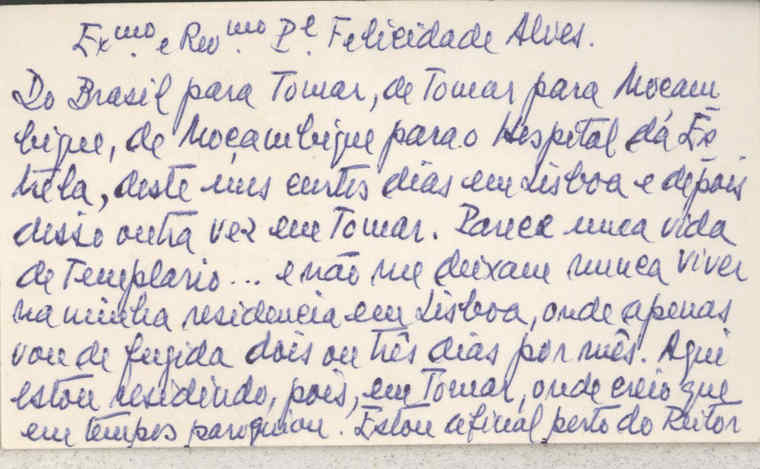 Ex.mo e Rev.mo Pe. Felicidade Alves.
Do Brasil para Tomar, de Tomar para Moçam
bique, de Moçambique para o Hospital da Es
trela, deste uns curtos dias em Lisboa e depois
disso outra vez em Tomar. Parece uma vida
de Templario... e não me deixam nunca viver
na minha residencia em Lisboa, onde apenas
vou de fugida dois ou três dias por mês. Aqui
estou residindo, pois, em Tomar, onde creio que
em tempos paroquiou. Estou afinal perto do Reitor